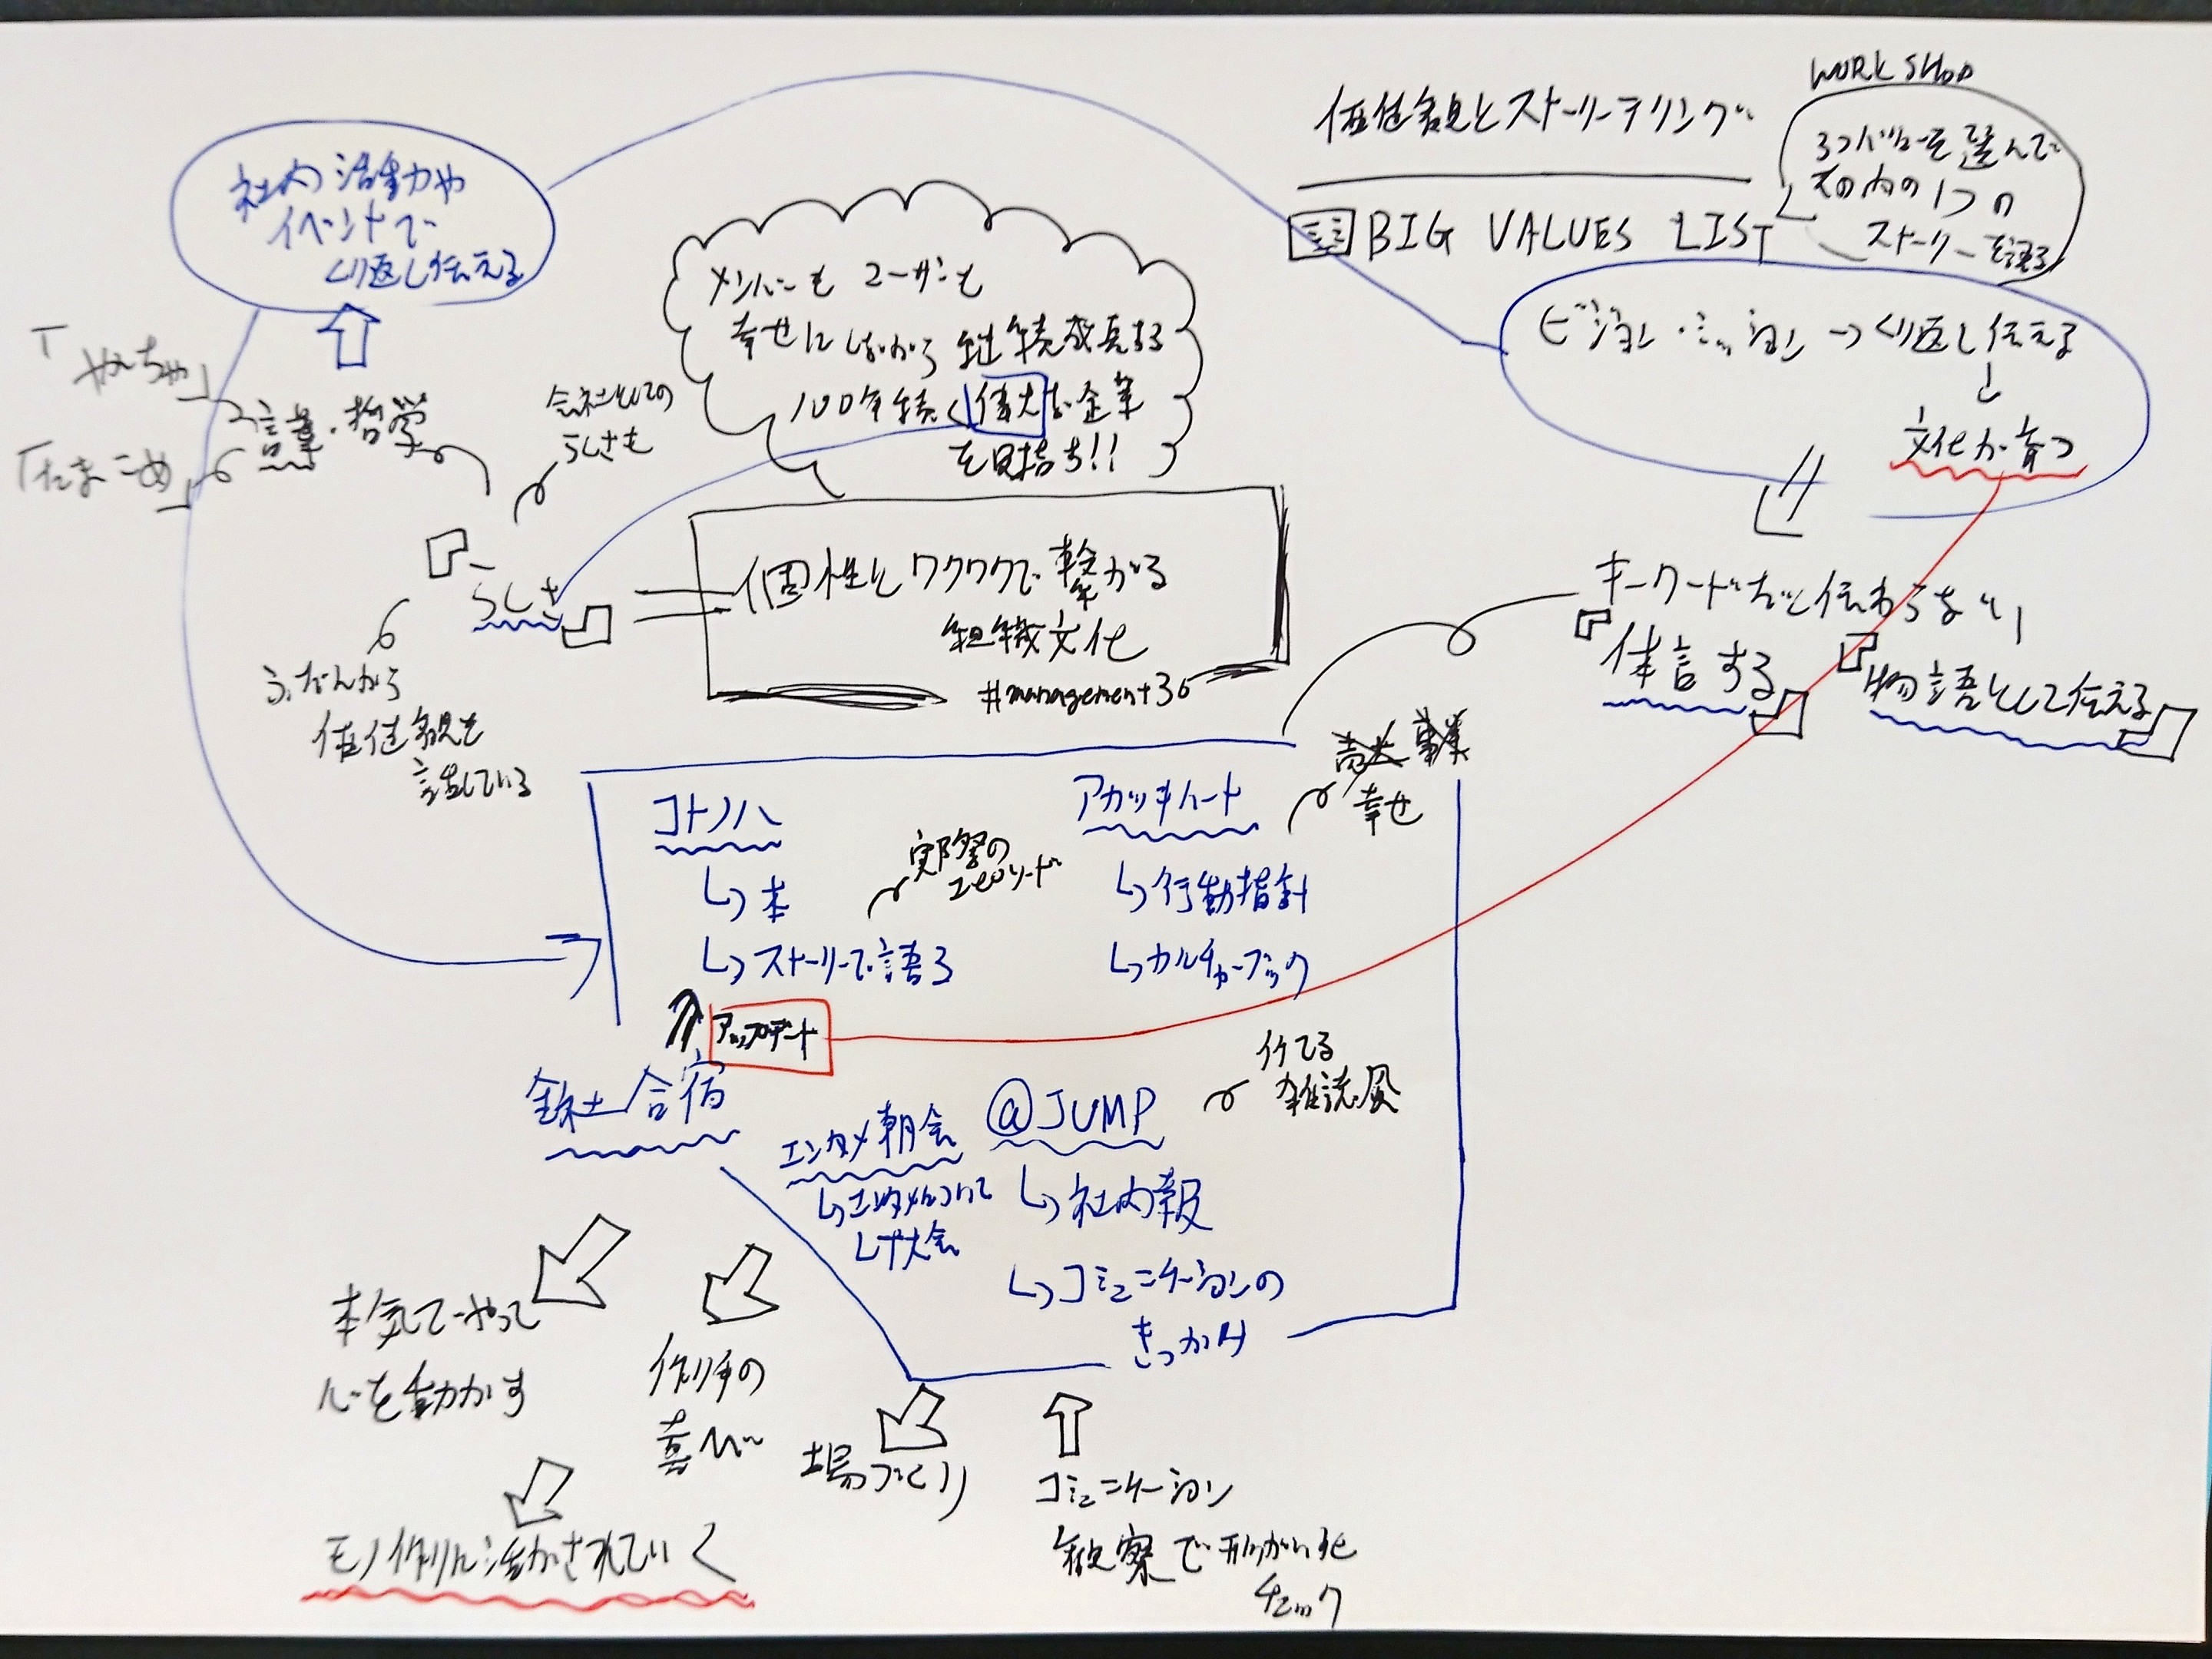 WORK SHOP
価値観とストーリーテリング
3つバリューを選んで
その内の1つの
ストーリーを語る
BIG VALUES LIST
社内活動や
イベントで
くり返し伝える
メンバーも ユーザーも
幸せにしながら 継続成長する
100年続く偉大な企業
を目指す!!
ビジョン・ミッション→くり返し伝える
文化が育つ
「やんちゃ」
「たまごめ」
言葉・哲学
会社としての
らしさも
「らしさ」
ふだんから
価値観を
話している
個性とワクワクで繋がる
組織文化
#management30
キーワードだと伝わらない
『体言する』
『物語として伝える』
コトノハ
本
実際の
エピソード
ストーリーで語る
アカツキハート
幸せ
行動指針
カルチャーブック
アップデート
全社合宿
エンタメ朝会
@JUMP
イケてる
雑誌風
社内報
コミュニケーションの
きっかけ
本気でやって
心を動かす
作り手の
喜び
場づくり
コミュニケーション
観察で形がい化
チェック
モノ作りに活かされていく